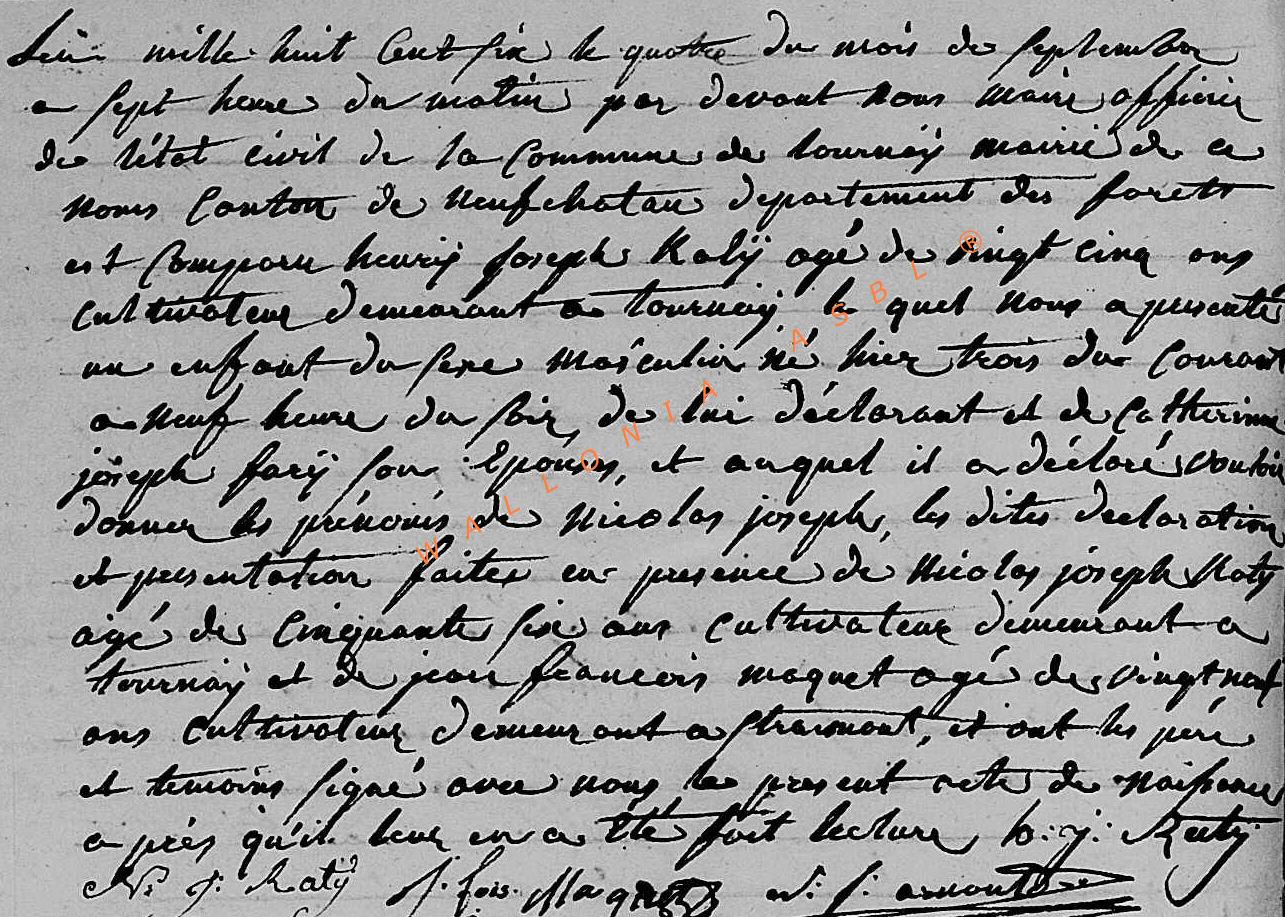 L'an mille huit Cent six le quatre du mois de septembre
a sept heure du matin par devant nous maire officier
de l'état civil de la Commune de tournay mairie de ce
noms Canton de neufchatau departement des forett
est Comparu henry joseph Katÿ agé de vingt cinq ans
cultivateur demeurant a tournay le quel nous a presenté
un enffant du sexe masculin né hier trois du Courant
a neuf heure du soir, de lui déclarant et de Catherinne
joseph farÿ son Epouse, et auquel il a déclaré vouloir
donner les prénoms de nicolas joseph, les dites declaration
et presentation faites en presence de nicolas joseph Katÿ
agé de Cinquante six ans cultivateur demeurant a
tournay et de jean francois maquet agé de vingt neuf
ans cultivateur demeurant a straimont, et ont les pere
et temoins signé avec nous le present acte de naissance
a prés qu'il leur en a été fait lecture h: j: Ratÿ
N: j: Ratÿ j: fois: Maquet
WALLONIA ASBL ®